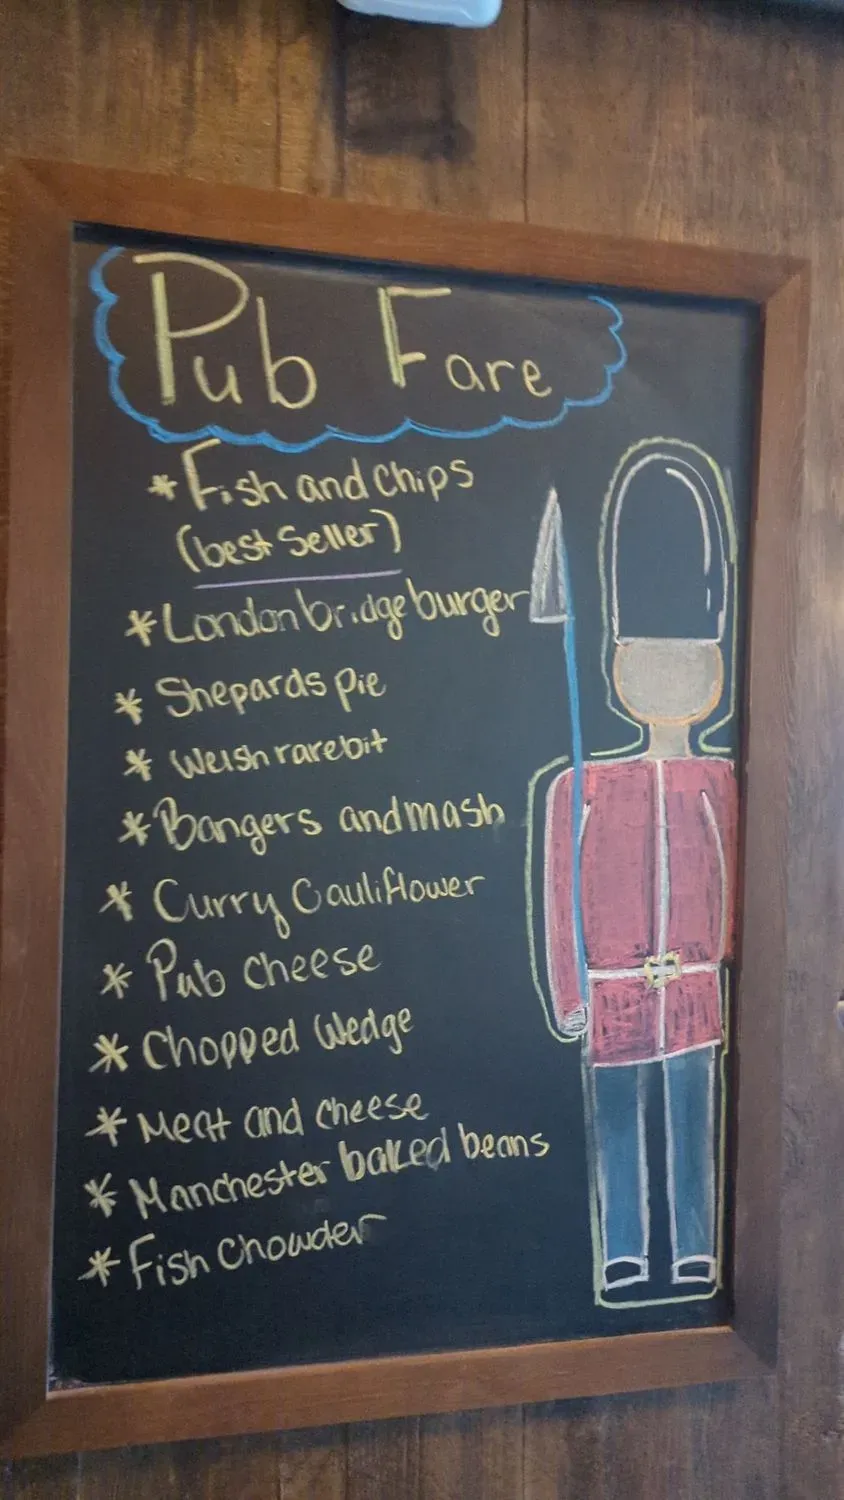 Pub Fare
* Fish and chips
(best seller)
* London bridge burger
* Shepards pie
* Welsh rarebit
* Bangers and mash
* Curry Cauliflower
* Pub cheese
* Chopped Wedge
* Meat and cheese
* Manchester baked beans
* Fish Chowder